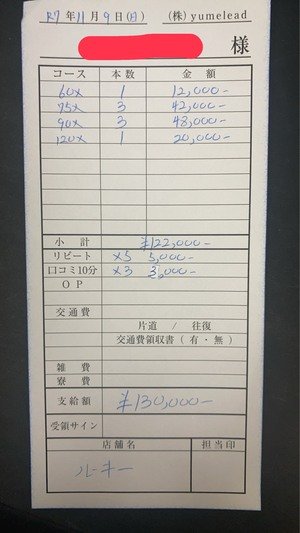 R7年11月9日(日) (株)yumelead
様
コース 本数 金額
60分 1 12,000-
75分 3 42,000-
90分 3 48,000-
120分 1 20,000-
小計 ¥122,000-
リピート ×5 5,000-
口コミ10分 ×3 3,000-
OP
交通費
片道 / 往復
交通費領収書(有・無)
雑費
寮費
支給額 ¥130,000-
受領サイン
店舗名 担当印
ルーキー